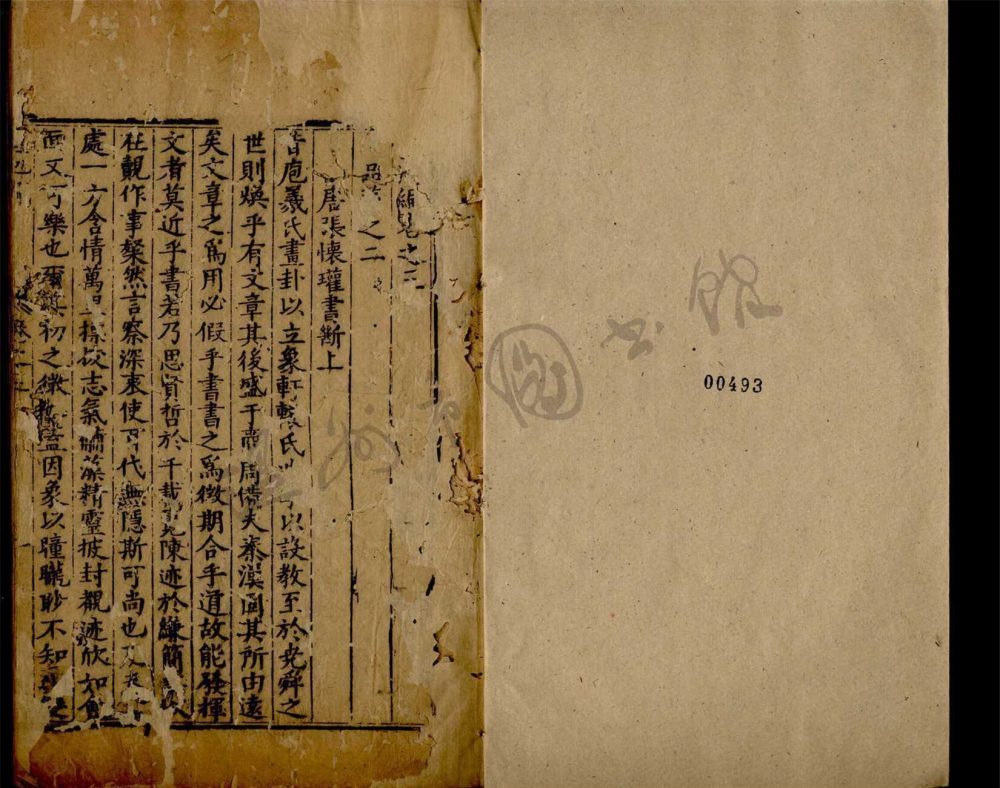 之三
品 之二
唐張懷瓘書斷上
昔庖羲氏畫卦以立象軒轅氏 以設教至於尭舜之
世則煥乎有文章其後盛于商周備夫秦漢固其所由遠
矣文章之爲用必假乎書書之爲徴期合乎道故能發揮
文者莫近乎書若乃思賢哲於千載 陳迹於縑簡
在覿作事粲然言察深衷使百代無隱斯可尚也及
處一方含情萬里摽拔志氣黼藻精靈披封覩迹欣如會
面又可樂也爾其初之微 蓋因象以瞳矓眇不知
圖書館
00493